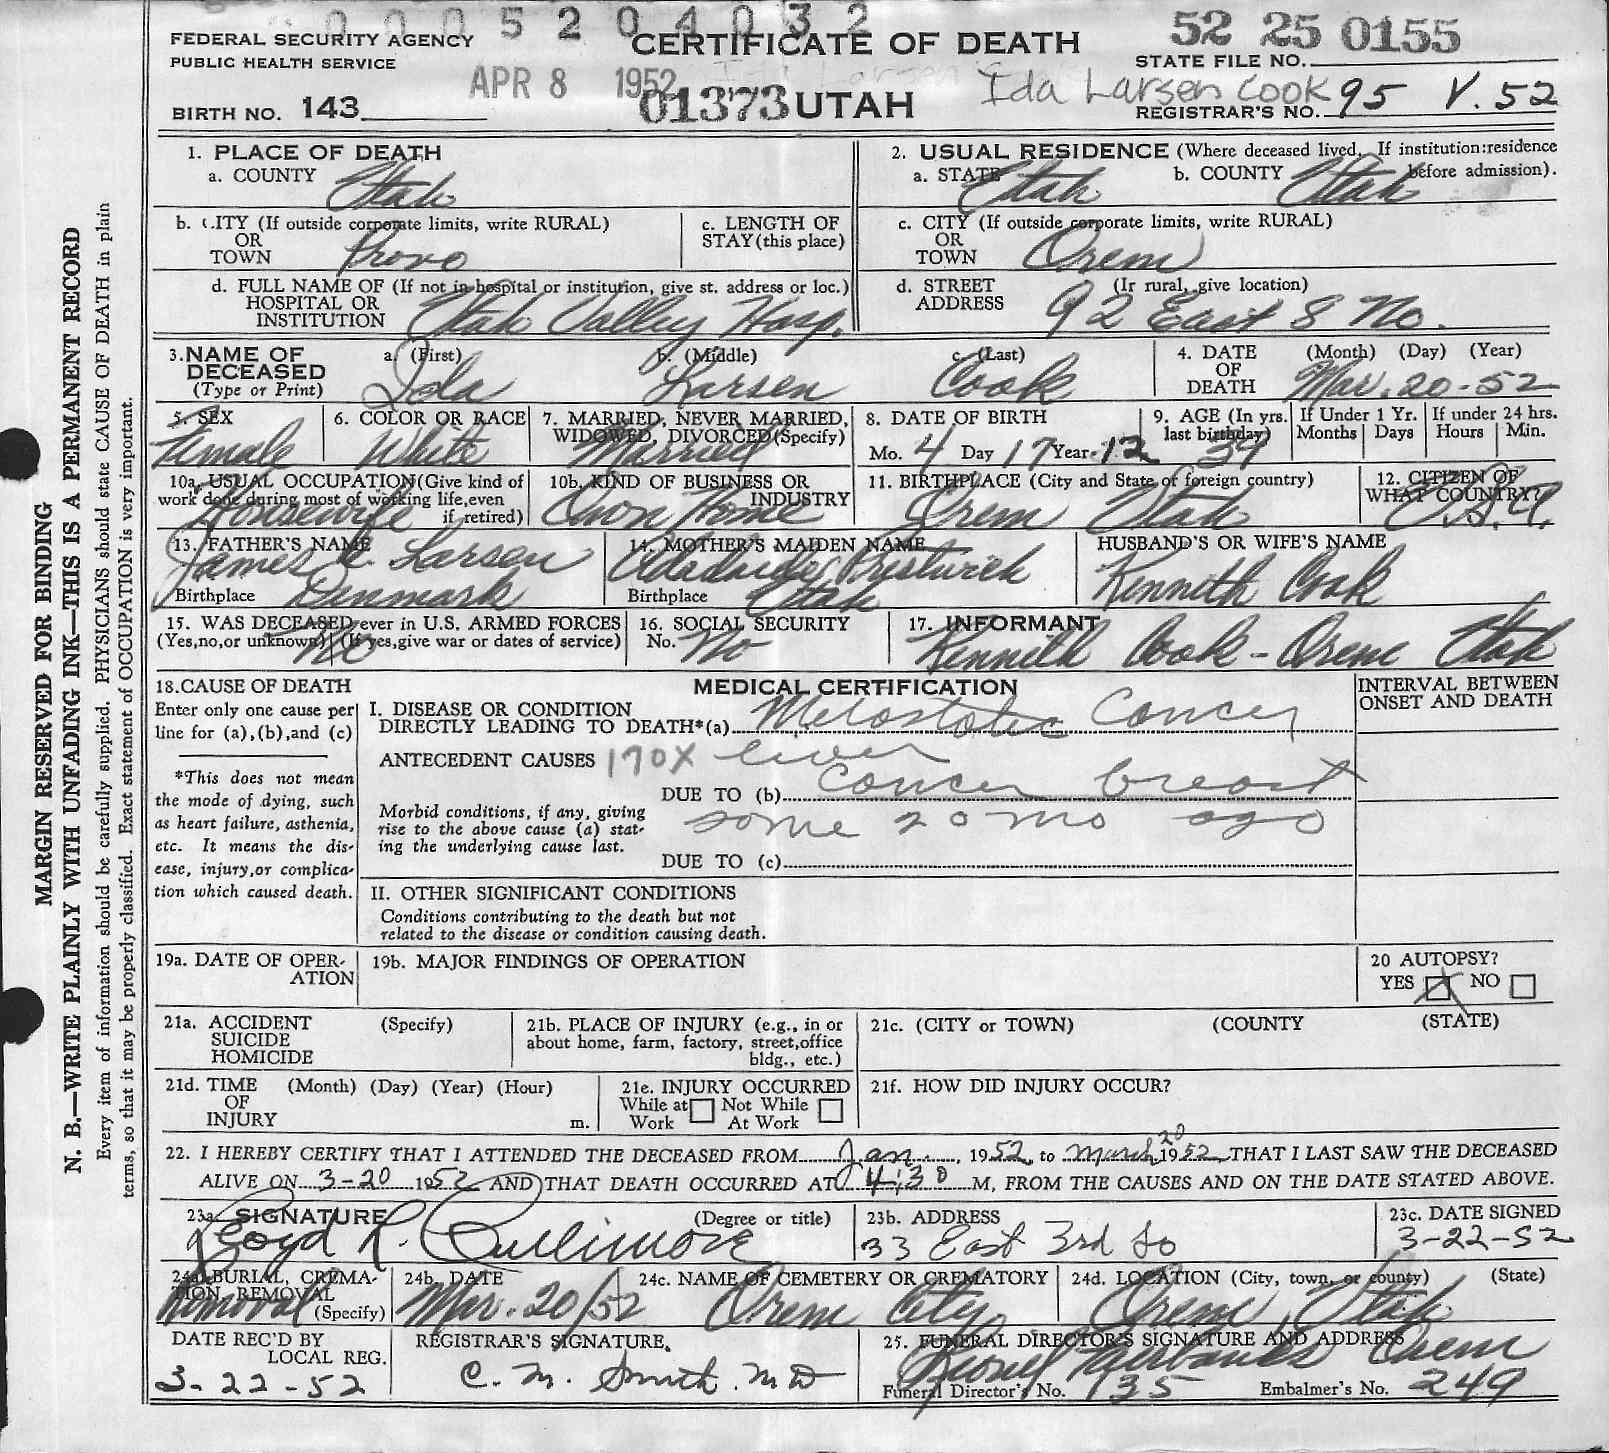 0 0 0 5 2 0 4 0 3 2
FEDERAL SECURITY AGENCY
PUBLIC HEALTH SERVICE
CERTIFICATE OF DEATH
52 25 0155
STATE FILE NO.
APR 8 1952
Ida Larsen Cook
BIRTH NO. 143
01373 UTAH
REGISTRAR'S NO. 95 V. 52
1. PLACE OF DEATH
a. COUNTY Utah
2. USUAL RESIDENCE (Where deceased lived, If institution:residence before admission).
a. STATE Utah b. COUNTY Utah
b. CITY (If outside corporate limits, write RURAL)
OR
TOWN Provo
c. LENGTH OF
STAY (this place)
c. CITY (If outside corporate limits, write RURAL)
OR
TOWN Orem
d. FULL NAME OF (If not in hospital or institution, give st. address or loc.)
HOSPITAL OR
INSTITUTION Utah Valley Hosp.
d. STREET (Ir rural, give location)
ADDRESS 92 East 8 No.
3. NAME OF
DECEASED
(Type or Print)
a. (First) Ida
b. (Middle) Larsen
c. (Last) Cook
4. DATE
OF
DEATH
(Month) (Day) (Year)
Mar. 20-52
5. SEX
Female
6. COLOR OR RACE
White
7. MARRIED, NEVER MARRIED,
WIDOWED, DIVORCED (Specify)
Married
8. DATE OF BIRTH
Mo. 4 Day 17 Year 12
9. AGE (In yrs.
last birthday)
39
If Under 1 Yr.
Months Days
If under 24 hrs.
Hours Min.
10a. USUAL OCCUPATION (Give kind of
work done during most of working life, even
if retired)
Housewife
10b. KIND OF BUSINESS OR
INDUSTRY
Own Home
11. BIRTHPLACE (City and State of foreign country)
Orem Utah
12. CITIZEN OF
WHAT COUNTRY?
U.S.A.
13. FATHER'S NAME
James C. Larsen
Birthplace Denmark
14. MOTHER'S MAIDEN NAME
Prestwich
Birthplace Utah
HUSBAND'S OR WIFE'S NAME
Kenneth Cook
15. WAS DECEASED ever in U.S. ARMED FORCES
(Yes,no,or unknown) (If yes,give war or dates of service)
No
16. SOCIAL SECURITY
No. No
17. INFORMANT
Kenneth Cook - Orem Utah
18. CAUSE OF DEATH
Enter only one cause per
line for (a),(b),and (c)
*This does not mean
the mode of dying, such
as heart failure, asthenia,
etc. It means the dis-
ease, injury,or complica-
tion which caused death.
MEDICAL CERTIFICATION
I. DISEASE OR CONDITION
DIRECTLY LEADING TO DEATH*(a) Metastatic Cancer
ANTECEDENT CAUSES 170X liver
DUE TO (b) Cancer breast
Morbid conditions, if any, giving
rise to the above cause (a) stat-
ing the underlying cause last.
some 20 mo ago
DUE TO (c)
II. OTHER SIGNIFICANT CONDITIONS
Conditions contributing to the death but not
related to the disease or condition causing death.
INTERVAL BETWEEN
ONSET AND DEATH
19a. DATE OF OPER-
ATION
19b. MAJOR FINDINGS OF OPERATION
20 AUTOPSY?
YES X NO
21a. ACCIDENT (Specify)
SUICIDE
HOMICIDE
21b. PLACE OF INJURY (e.g., in or
about home, farm, factory, street,office
bldg., etc.)
21c. (CITY or TOWN) (COUNTY (STATE)
21d. TIME (Month) (Day) (Year) (Hour)
OF
INJURY m.
21e. INJURY OCCURRED
While at Work Not While At Work
21f. HOW DID INJURY OCCUR?
22. I HEREBY CERTIFY THAT I ATTENDED THE DECEASED FROM Jan., 1952 to March 20 1952, THAT I LAST SAW THE DECEASED
ALIVE ON 3-20 1952 AND THAT DEATH OCCURRED AT 4:30 M, FROM THE CAUSES AND ON THE DATE STATED ABOVE.
23a. SIGNATURE (Degree or title)
Lloyd L. Cullimore
23b. ADDRESS
33 East 3rd So
23c. DATE SIGNED
3-22-52
24a. BURIAL, CREMA-
TION, REMOVAL
(Specify)
Removal
24b. DATE
Mar. 20/52
24c. NAME OF CEMETERY OR CREMATORY
Orem City
24d. LOCATION (City, town, or county) (State)
Orem, Utah
DATE REC'D BY
LOCAL REG.
3-22-52
REGISTRAR'S SIGNATURE.
C. M. Smith. MD
25. FUNERAL DIRECTOR'S SIGNATURE AND ADDRESS
Orem
Funeral Director's No. 135 Embalmer's No. 249
MARGIN RESERVED FOR BINDING
N. B.—WRITE PLAINLY WITH UNFADING INK—THIS IS A PERMANENT RECORD
Every item of information should be carefully supplied. PHYSICIANS should state CAUSE OF DEATH in plain
terms, so that it may be properly classified. Exact statement of OCCUPATION is very important.